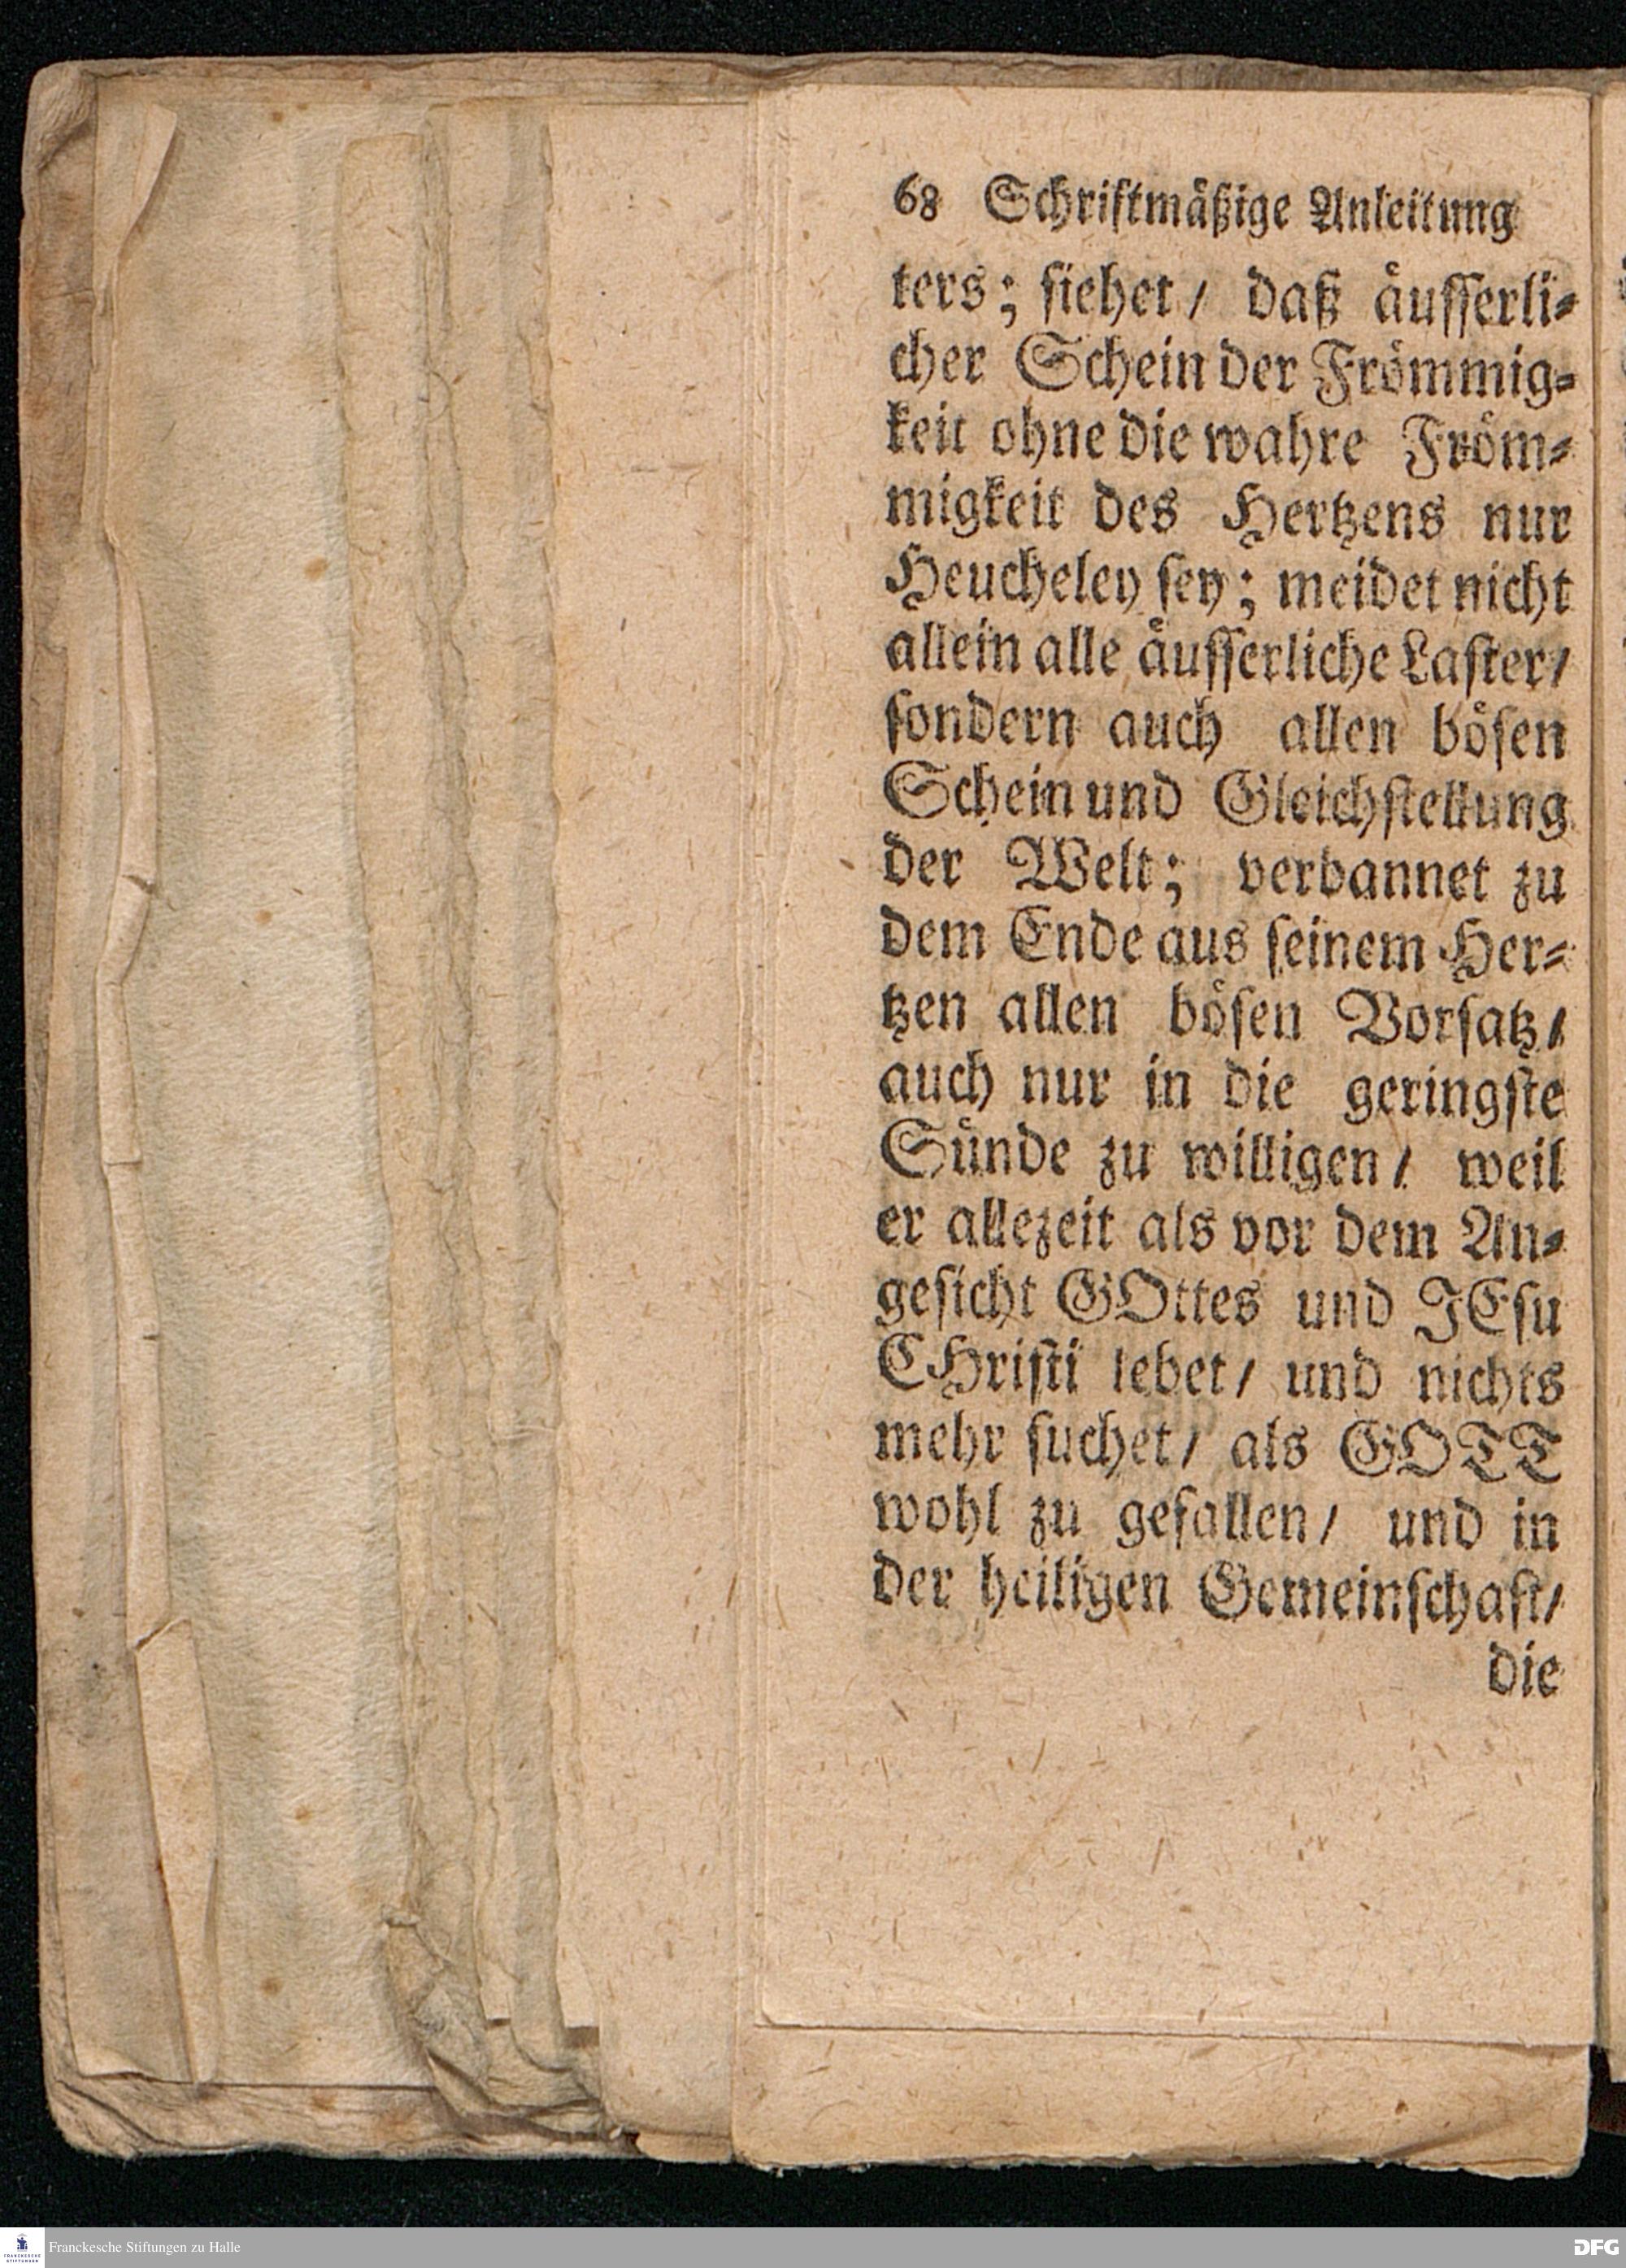 68 Schriftmäßige Anleitung
ters; siehet/ daß äusserli-
cher Schein der Frömmig-
keit ohne die wahre Fröm-
migkeit des Hertzens nur
Heucheley sey; meidet nicht
allein alle äusserliche Laster/
sondern auch allen bösen
Schein und Gleichstellung
der Welt; verbannet zu
dem Ende aus seinem Her-
tzen allen bösen Vorsatz/
auch nur in die geringste
Sünde zu willigen/ weil
er allezeit als vor dem An-
gesicht GOttes und JEsu
CHristi lebet/ und nichts
mehr suchet/ als GOTT
wohl zu gefallen/ und in
der heiligen Gemeinschaft/
die
FRANCKESCHE
STIFTUNGEN
Franckesche Stiftungen zu Halle
DFG